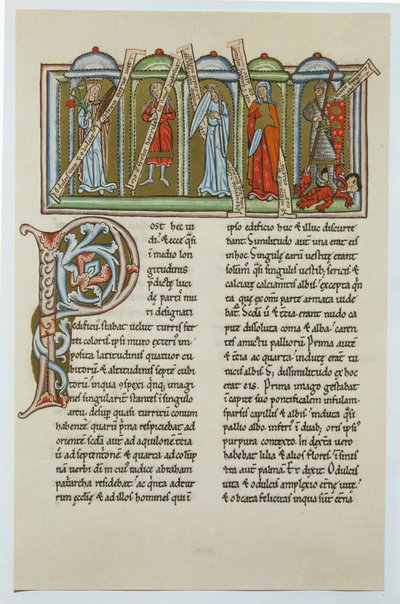 Post hec ui
di. & ecce q̄si
i medio lon
gitudinis
p̄dictę luci
dę parti mu
ri designati
edificii stabat uelut turris fer
rei coloris ipsi muro exteri im
posita latitudinis quatuor cu
bitorū & altitudinis septē cubi
torū. in qua ꝯspexi qnq; imagi
nes singularit̄ stantes i singulis
arcu desup quasi turritū conum
habente. quarū p̄ma respiciebat ad
orientē. scd̄a aut̄ ad aquilonē. tt̄ia
ū ad septentrionē & quarta ad colūp
nā uerbi dī in cui' radice abraham
patriarcha residebat. ac qnta ad tur
rim ęccłię & ad illos homines qui i
ipso edificio huc & illuc discurre
bant. Similitudo aut̄ una erat eis
in hoc. Singulę earū uestitę erant
q̄si singulis uestib; sericis &
calciatę calciam̄tis albis. excepta qn
ta quę ex omi parte armata uide
bat̄. Scd̄a ū & tt̄ia erant nudo ca
pite dissoluta coma & alba. caren
tes amictu palliorū. Prima aut̄
& tt̄ia ac quarta. indutę erant tu
nicis albis. S; dissimilitudo ex hoc
erat eis. Prima imago gestabat
i capite suo pontificalem infulam.
sparsis capillis & albis. induta q̄si
pallio albo. inferi' i duab; oris ipsi'
purpura contexto. In dextera uero
habebat lilia & alios flores. i sinis
tra aut̄ palmā. Et dixit. O dulcis
uita & o dulcis amplexio etn̄ę uitę.
& o beata felicitas in qua sunt etn̄a